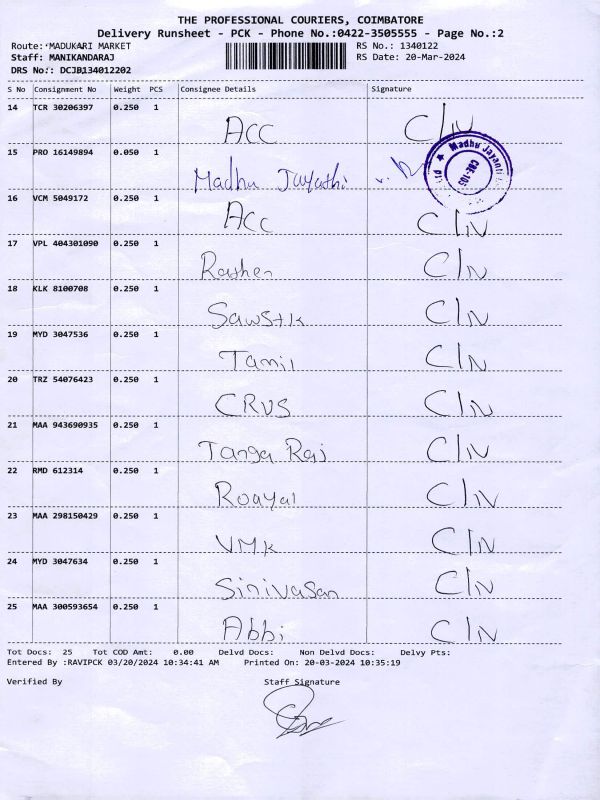 THE PROFESSIONAL COURIERS, COIMBATORE
Delivery Runsheet - PCK - Phone No.:0422-3505555 - Page No.:2
Route: MADUKARI MARKET RS No.: 1340122
Staff: MANIKANDARAJ RS Date: 20-Mar-2024
DRS No: DCJB134012202
S No Consignment No Weight PCS Consignee Details Signature
14 TCR 30206397 0.250 1 Acc C/N
15 PRO 16149894 0.050 1 Madhu Jayathi
Madhu Jayanti CBE-105
16 VCM 5049172 0.250 1 Acc C/N
17 VPL 404301090 0.250 1 Rasher C/N
18 KLK 8100708 0.250 1 Sawstk C/N
19 MYD 3047536 0.250 1 Tamil C/N
20 TRZ 54076423 0.250 1 CRVS C/N
21 MAA 943690935 0.250 1 Tanga Raj C/N
22 RMD 612314 0.250 1 Roayal C/N
23 MAA 298150429 0.250 1 VMK C/N
24 MYD 3047634 0.250 1 Sinivasan C/N
25 MAA 300593654 0.250 1 Abbi C/N
Tot Docs: 25 Tot COD Amt: 0.00 Delvd Docs: Non Delvd Docs: Delvy Pts:
Entered By :RAVIPCK 03/20/2024 10:34:41 AM Printed On: 20-03-2024 10:35:19
Verified By Staff Signature